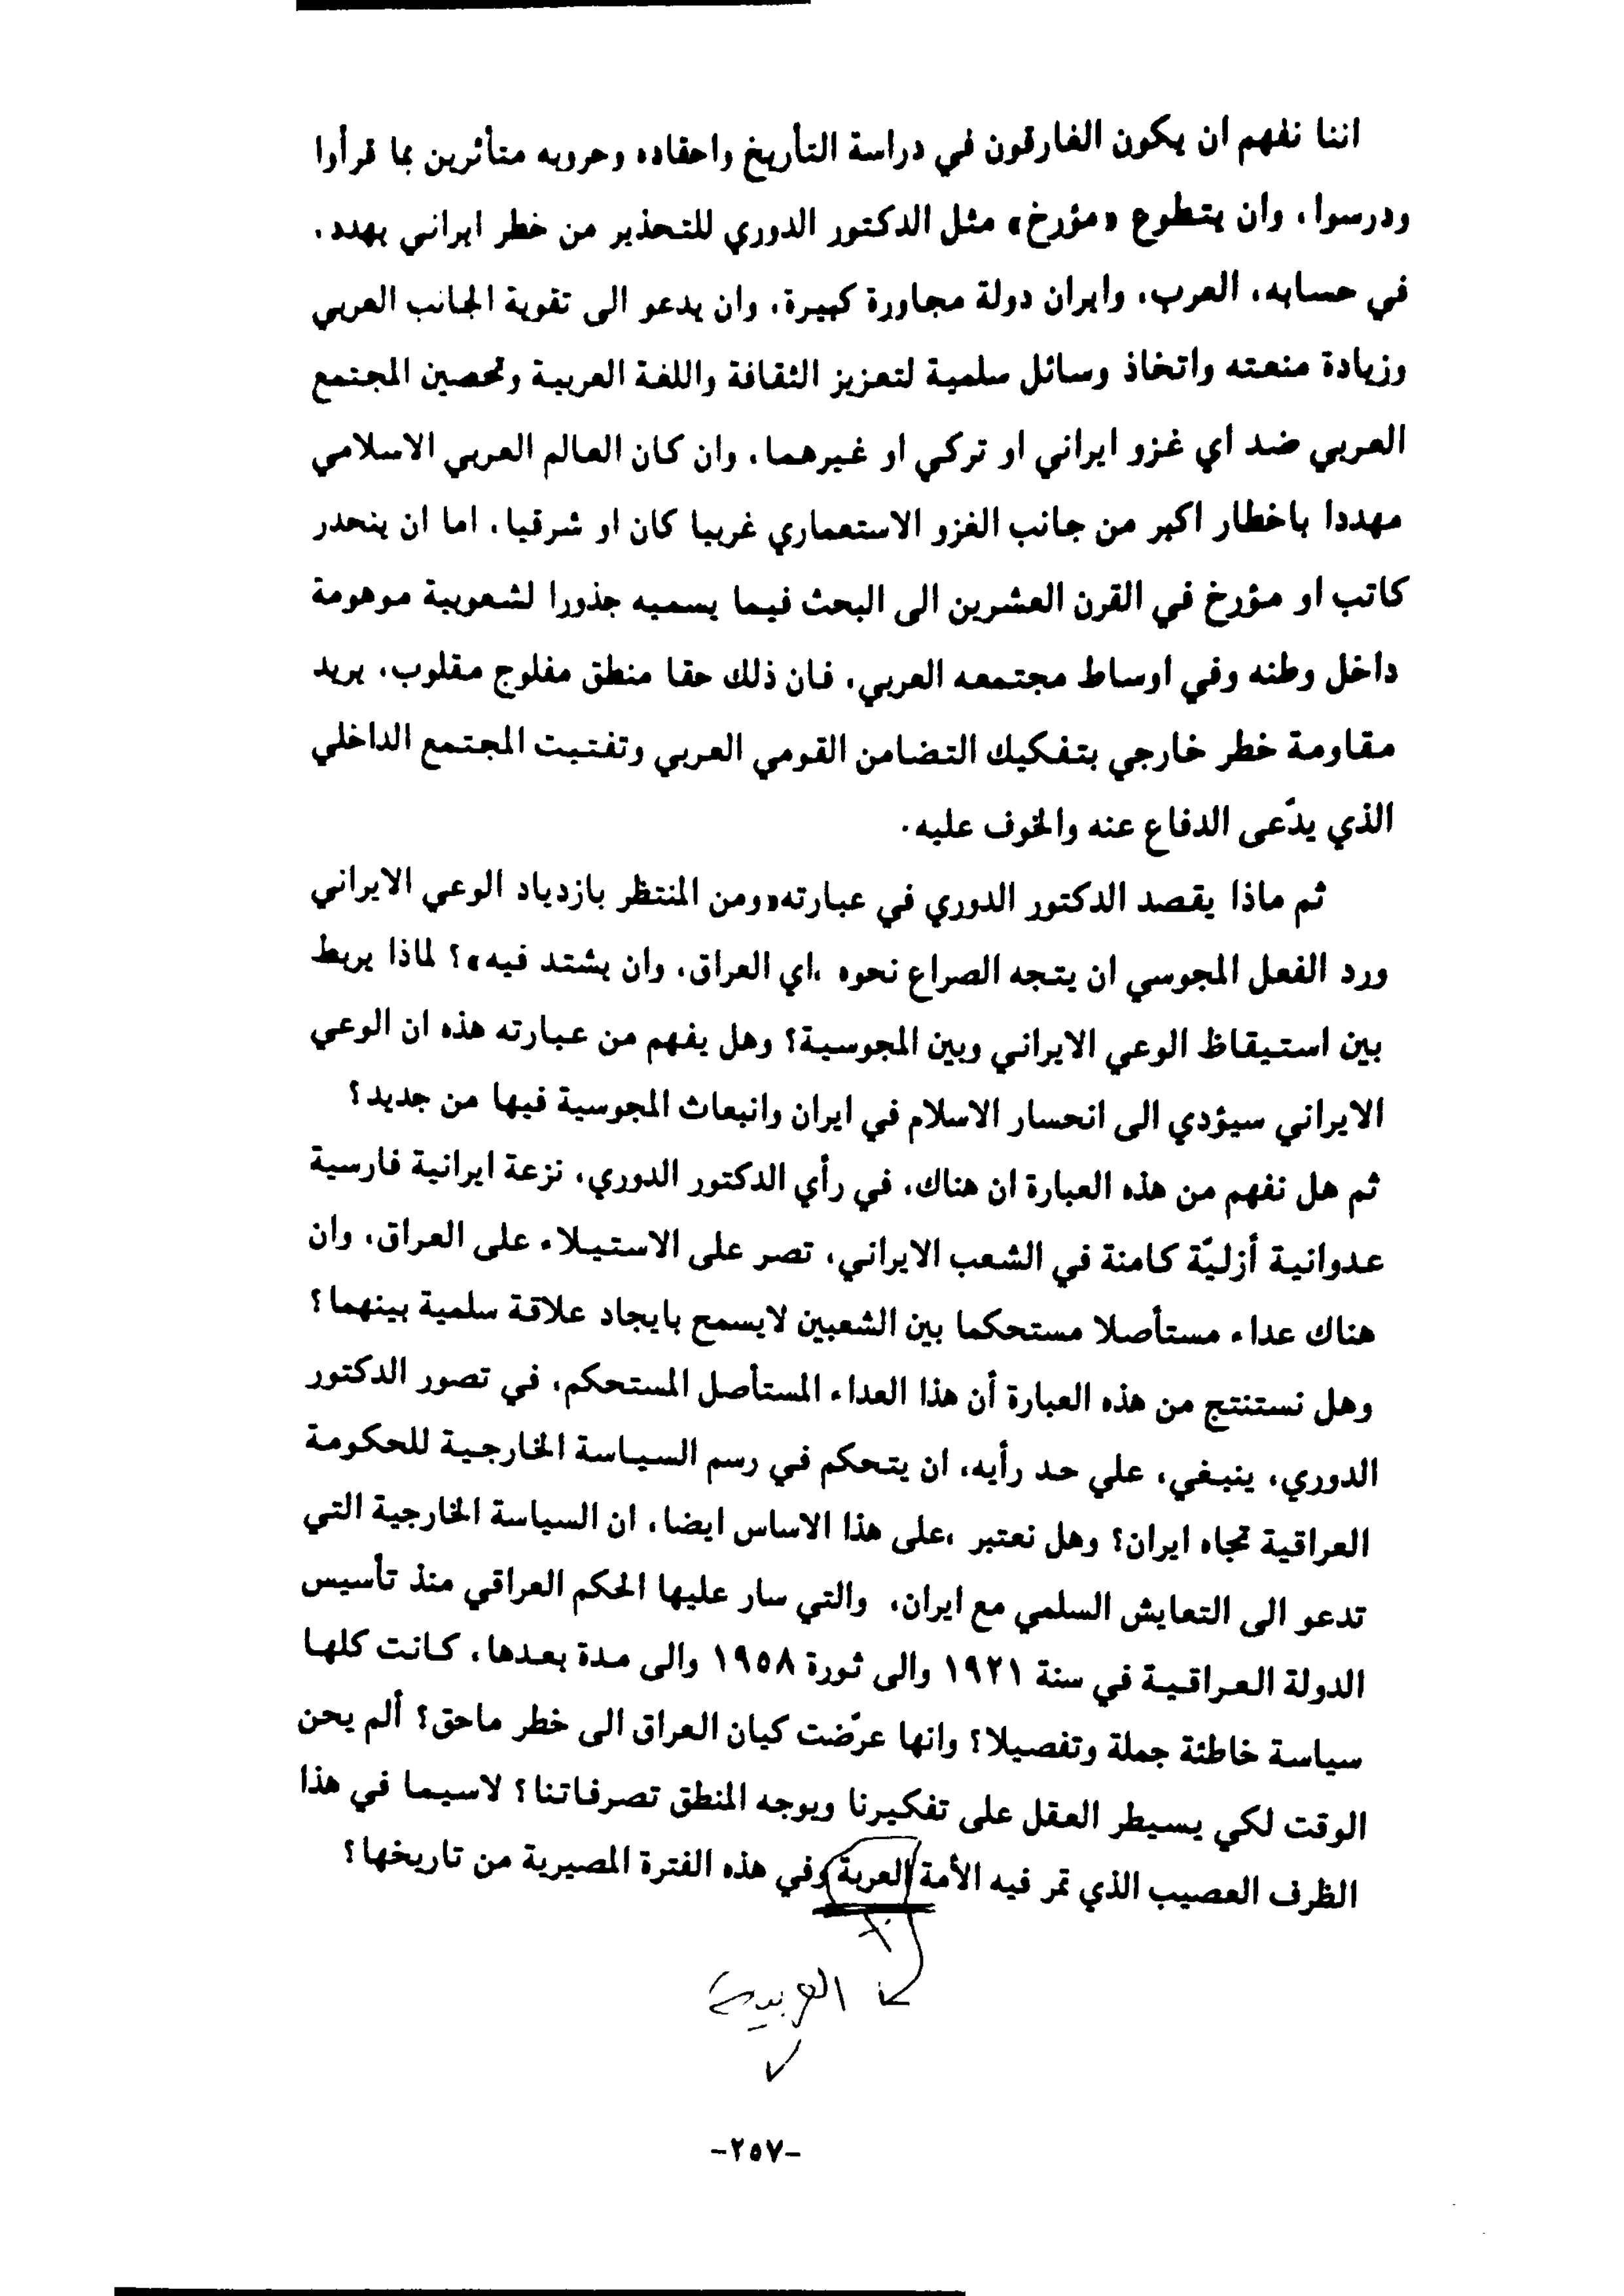 اننا نفهم ان يكون الغارقون في دراسة التأريخ واحقاده وحروبه متأثرين بما قرأوا
ودرسوا، وان يتطوع «مؤرخ» مثل الدكتور الدوري للتحذير من خطر ايراني يهدد،
في حسابه، العرب، وايران دولة مجاورة كبيرة، وان يدعو الى تقوية الجانب العربي
وزيادة منعته واتخاذ وسائل سلمية لتعزيز الثقافة واللغة العربية وتحصين المجتمع
العربي ضد اي غزو ايراني او تركي او غيرهما، وان كان العالم العربي الاسلامي
مهددا باخطار اكبر من جانب الغزو الاستعماري غربيا كان او شرقيا، اما ان ينحدر
كاتب او مؤرخ في القرن العشرين الى البحث فيما يسميه جذورا لشعوبية موهومة
داخل وطنه وفي اوساط مجتمعه العربي، فان ذلك حقا منطق مفلوج مقلوب، يريد
مقاومة خطر خارجي بتفكيك التضامن القومي العربي وتفتيت المجتمع الداخلي
الذي يدّعى الدفاع عنه والخوف عليه.
ثم ماذا يقصد الدكتور الدوري في عبارته«ومن المنتظر بازدياد الوعي الايراني
ورد الفعل المجوسي ان يتجه الصراع نحوه ،اي العراق، وان يشتد فيه»؟ لماذا يربط
بين استيقاظ الوعي الايراني وبين المجوسية؟ وهل يفهم من عبارته هذه ان الوعي
الايراني سيؤدي الى انحسار الاسلام في ايران وانبعاث المجوسية فيها من جديد؟
ثم هل نفهم من هذه العبارة ان هناك، في رأي الدكتور الدوري، نزعة ايرانية فارسية
عدوانية أزليّة كامنة في الشعب الايراني، تصر على الاستيلاء على العراق، وان
هناك عداء مستأصلا مستحكما بين الشعبين لايسمح بايجاد علاقة سلمية بينهما؟
وهل نستنتج من هذه العبارة أن هذا العداء المستأصل المستحكم، في تصور الدكتور
الدوري، ينبغي، علي حد رأيه، ان يتحكم في رسم السياسة الخارجية للحكومة
العراقية تجاه ايران؟ وهل نعتبر ،على هذا الاساس ايضا، ان السياسة الخارجية التي
تدعو الى التعايش السلمي مع ايران، والتي سار عليها الحكم العراقي منذ تأسيس
الدولة العراقية في سنة ١٩٢١ والى ثورة ١٩٥٨ والى مدة بعدها، كانت كلها
سياسة خاطئة جملة وتفصيلا؟ وانها عرّضت كيان العراق الى خطر ماحق؟ ألم يحن
الوقت لكي يسيطر العقل على تفكيرنا ويوجه المنطق تصرفاتنا؟ لاسيما في هذا
الظرف العصيب الذي تمر فيه الأمة العربة وفي هذه الفترة المصيرية من تاريخها؟
العربية
-٢٥٧-